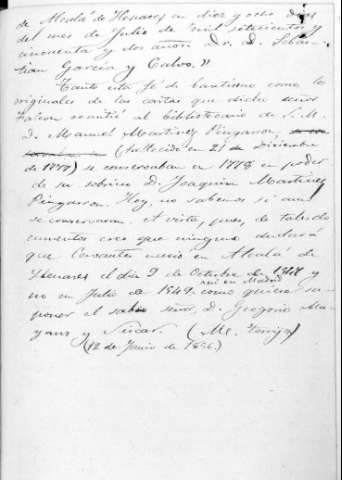 de Alcalá de Henares en diez y ocho dias
del mes de Julio de mil setecientos y
cincuenta y dos años. Dr. D. Sebas-
tian García y Calvo."
Tanto esta fé de bautismo como los
originales de las cartas que dicho señor
remitió al bibliotecario de S. M.
D. Manuel Martinez Pingarron,
(fallecido en 21 de Diciembre
de 1777) se conservaban en 1778 en poder
de su sobrino D. Joaquin Martinez
Pingarron. Hoy, no sabemos si aun
se conservaran. A vista, pues, de tales do
cumentos creo que ninguno dudará
que Cervantes nació en Alcalá de
Henares el dia 9 de Octubre de 1547 y
no en Julio de 1549
ni en Madrid
como quiere su-
poner el sabio señor D. Gregorio Ma-
yans y Siscar. (M.
(12 de Junio de 1836.)